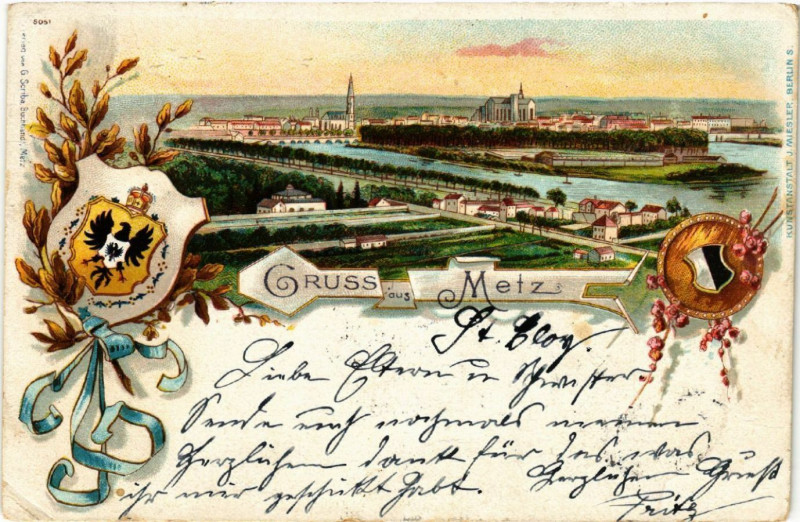 5051
Verlag von G. Scriba Buchhandl. Metz
KUNSTANSTALT J. MIESLER, BERLIN S.
GRUSS aus Metz
St. Eloy.
Liebe Eltern u Schwister
Sende euch nochmals meinen
Herzlichen dank für das was
ihr mir geschikt habt. Herzlichen Gruß
Fritz